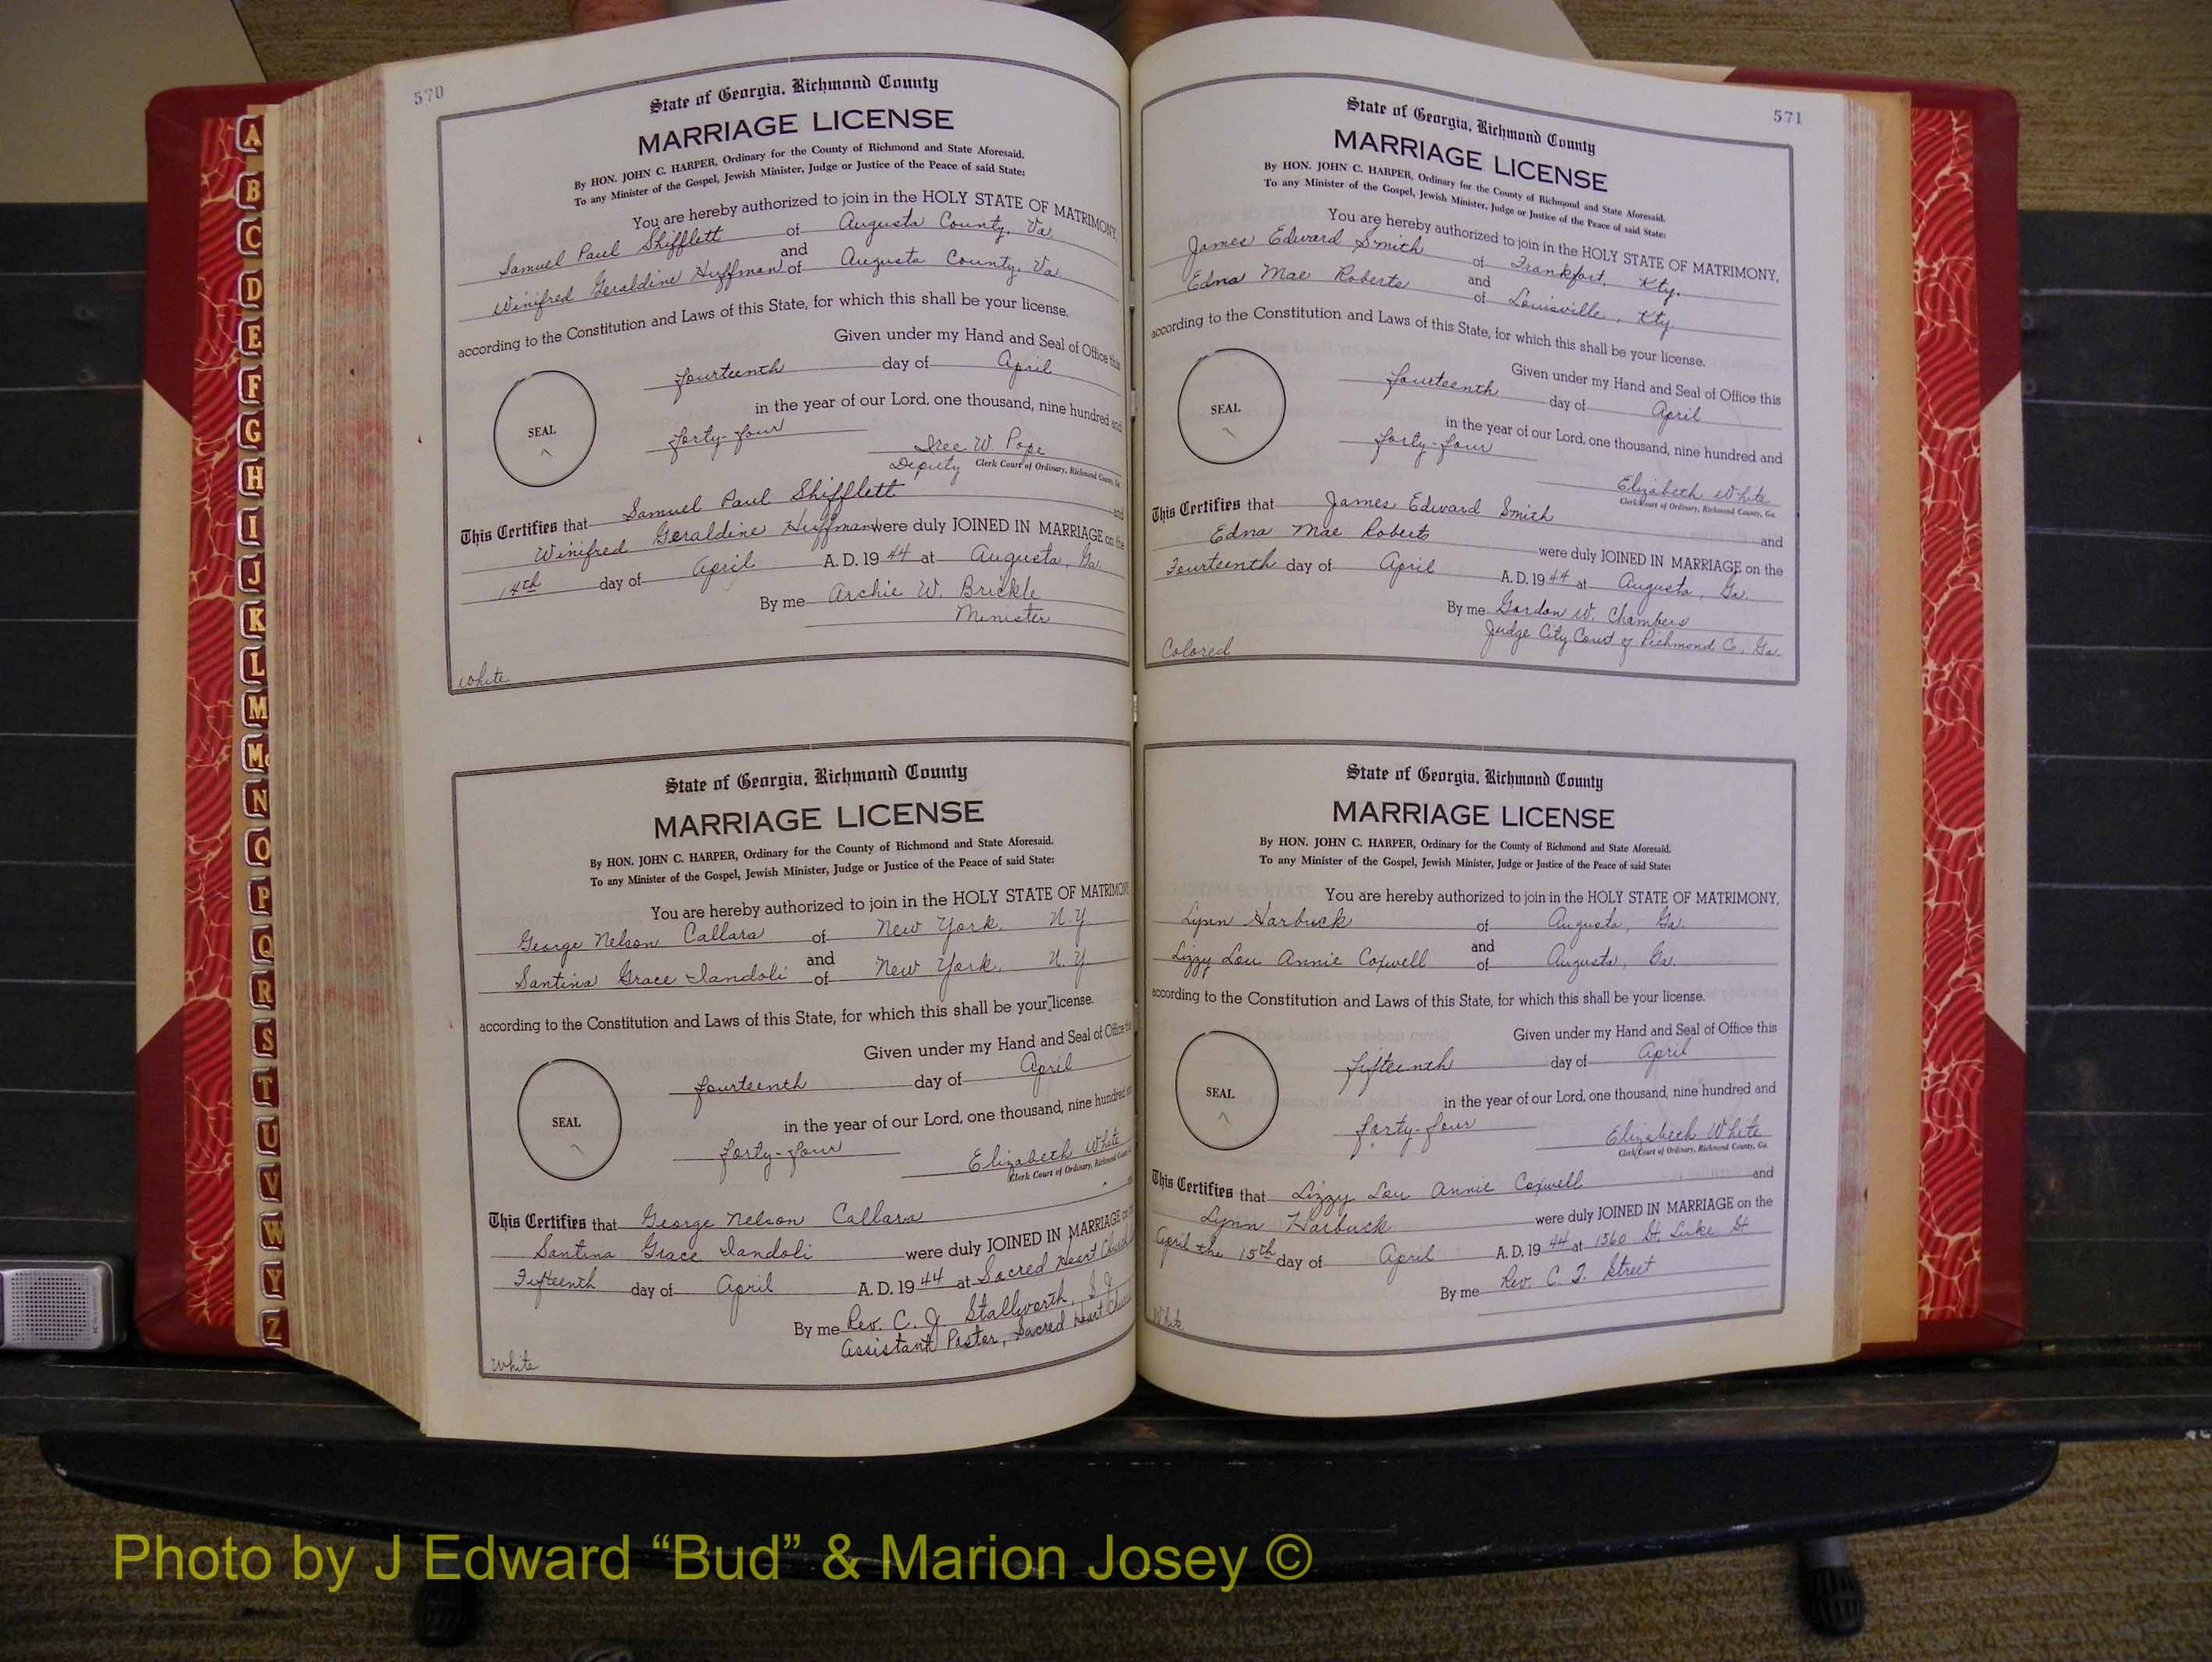 570
State of Georgia, Richmond County
MARRIAGE LICENSE
By HON. JOHN C. HARPER, Ordinary for the County of Richmond and State Aforesaid.
To any Minister of the Gospel, Jewish Minister, Judge or Justice of the Peace of said State:
You are hereby authorized to join in the HOLY STATE OF MATRIMONY,
Samuel Paul Shifflett of Augusta County, Va.
and
Winifred Geraldine Huffman of Augusta County, Va.
according to the Constitution and Laws of this State, for which this shall be your license.
Given under my Hand and Seal of Office this
fourteenth day of April
in the year of our Lord, one thousand, nine hundred and
SEAL
forty-four
W Pope
Deputy Clerk Court of Ordinary, Richmond County, Ga.
This Certifies that Samuel Paul Shifflett and
Winifred Geraldine Huffman were duly JOINED IN MARRIAGE on the
14th day of April A. D. 1944 at Augusta, Ga.
By me Archie W. Brickle
Minister
White
State of Georgia, Richmond County
MARRIAGE LICENSE
By HON. JOHN C. HARPER, Ordinary for the County of Richmond and State Aforesaid.
To any Minister of the Gospel, Jewish Minister, Judge or Justice of the Peace of said State:
You are hereby authorized to join in the HOLY STATE OF MATRIMONY
George Nelson Callara of New York, N.Y.
and
Santina Grace Iandoli of New York, N.Y.
according to the Constitution and Laws of this State, for which this shall be your license.
Given under my Hand and Seal of Office this
fourteenth day of April
in the year of our Lord, one thousand, nine hundred and
SEAL
forty-four
Elizabeth White
Clerk Court of Ordinary, Richmond County
This Certifies that George Nelson Callara
Santina Grace Iandoli were duly JOINED IN MARRIAGE on
Fifteenth day of April A. D. 1944 at Sacred Heart Church
By me Rev. C. J. Stallworth, S.J.
Assistant Pastor, Sacred Heart Church
White
571
State of Georgia, Richmond County
MARRIAGE LICENSE
By HON. JOHN C. HARPER, Ordinary for the County of Richmond and State Aforesaid.
To any Minister of the Gospel, Jewish Minister, Judge or Justice of the Peace of said State:
You are hereby authorized to join in the HOLY STATE OF MATRIMONY,
James Edward Smith of Frankfort, Kty.
and
Edna Mae Roberts of Louisville, Kty.
according to the Constitution and Laws of this State, for which this shall be your license.
Given under my Hand and Seal of Office this
fourteenth day of April
in the year of our Lord, one thousand, nine hundred and
SEAL
forty-four
Elizabeth White
Clerk Court of Ordinary, Richmond County, Ga.
This Certifies that James Edward Smith and
Edna Mae Roberts were duly JOINED IN MARRIAGE on the
Fourteenth day of April A. D. 1944 at Augusta, Ga.
By me Gordon W. Chambers
Judge City Court of Richmond C., Ga.
Colored
State of Georgia, Richmond County
MARRIAGE LICENSE
By HON. JOHN C. HARPER, Ordinary for the County of Richmond and State Aforesaid.
To any Minister of the Gospel, Jewish Minister, Judge or Justice of the Peace of said State:
You are hereby authorized to join in the HOLY STATE OF MATRIMONY,
Lynn Harbuck of Augusta, Ga.
and
Lizzy Lou Annie Coxwell of Augusta, Ga.
according to the Constitution and Laws of this State, for which this shall be your license.
Given under my Hand and Seal of Office this
fifteenth day of April
in the year of our Lord, one thousand, nine hundred and
SEAL
forty-four
Elizabeth White
Clerk Court of Ordinary, Richmond County, Ga.
This Certifies that Lizzy Lou Annie Coxwell and
Lynn Harbuck were duly JOINED IN MARRIAGE on the
April the 15th day of April A. D. 1944 at 1560 St. Luke St
By me Rev. C. F. Street
White
A
B
C
D
E
F
G
H
I
J
K
L
M
Mc
N
O
P
Q
R
S
T
U
V
W
Y
Z
Photo by J Edward “Bud” & Marion Josey ©